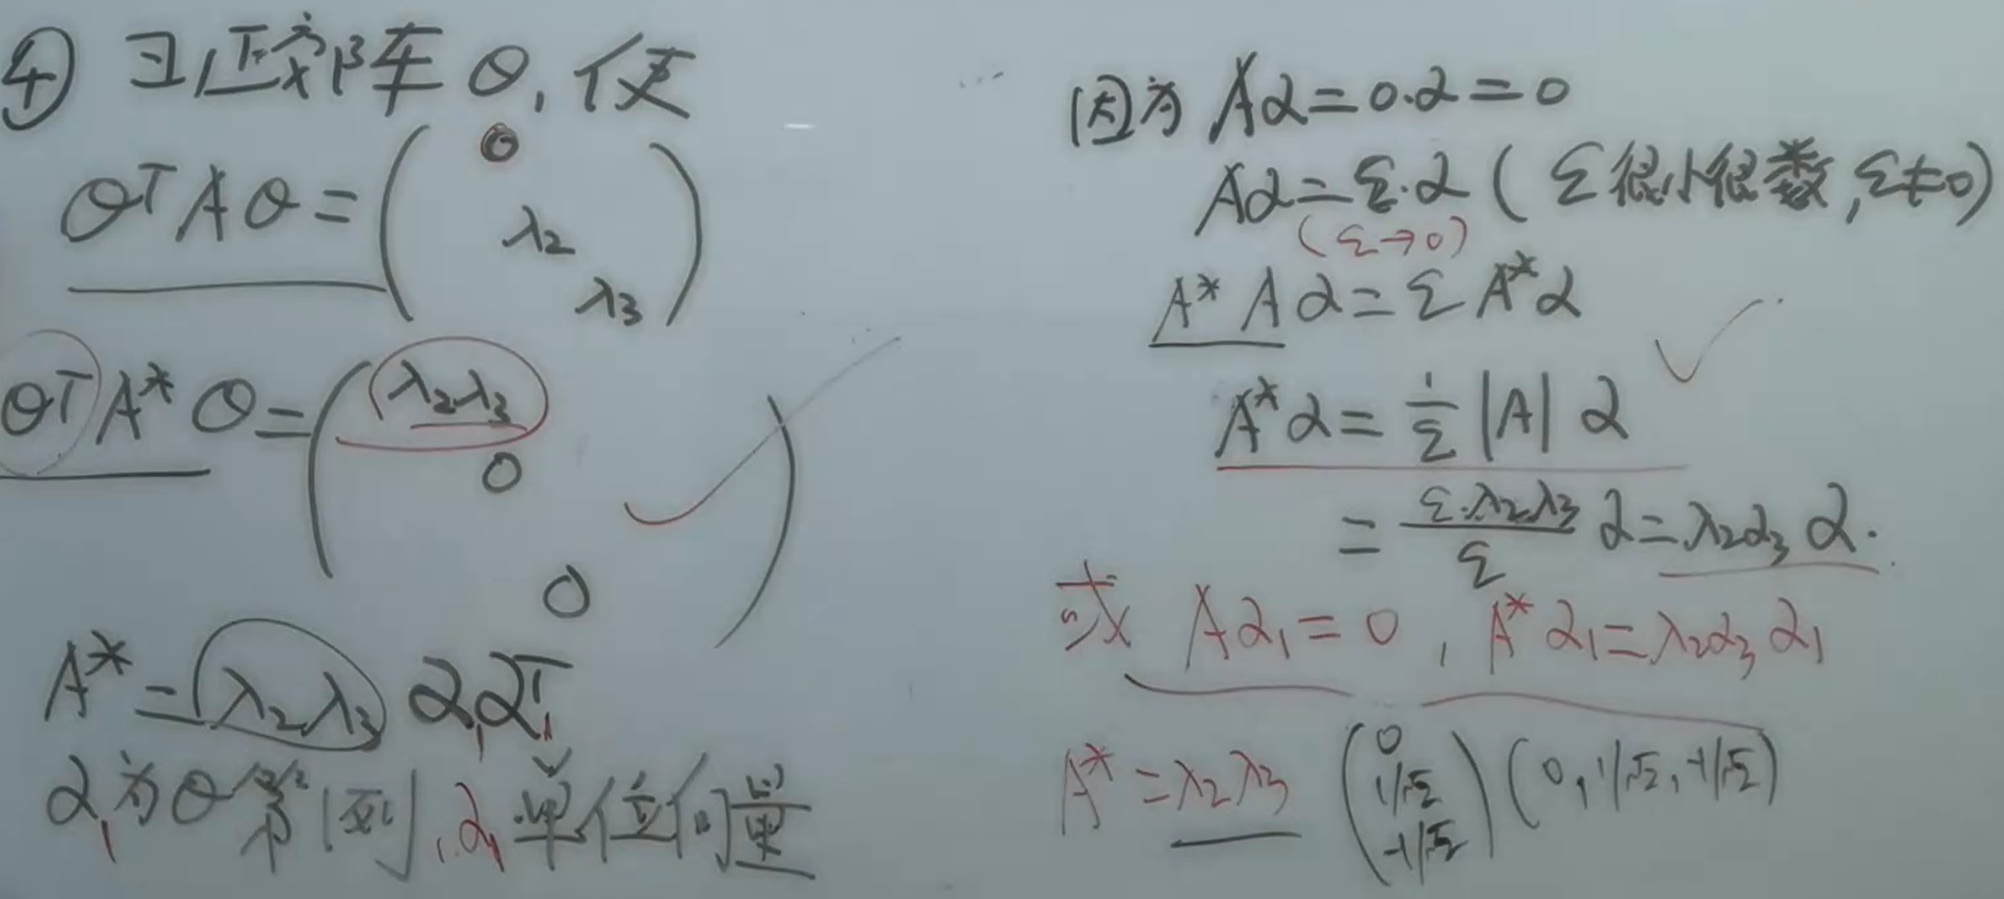 ④ ∃正交阵Q,使
QᵀAQ=(0 λ₂ λ₃)
QᵀA*Q=(λ₂λ₃ 0 0)
A*=λ₂λ₃α₁α₁ᵀ
α₁为Q第1列,α₁单位向量
因为 Aα=0·α=0
Aα=Σ·α(Σ很小很数,Σ≠0)
(Σ→0)
A*Aα=ΣA*α
A*α=1/Σ|A|α
=Σ·λ₂λ₃/Σ α=λ₂λ₃α.
或 Aα₁=0,A*α₁=λ₂λ₃α₁
A*=λ₂λ₃(0 1/√2 -1/√2)(0,1/√2,-1/√2)